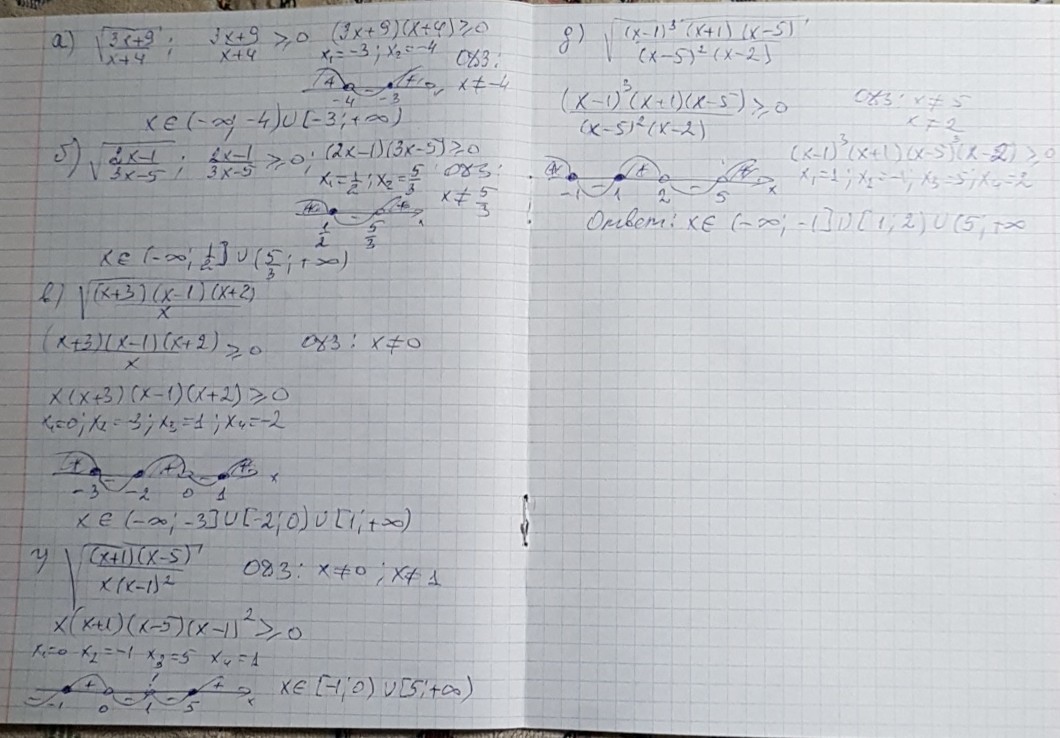 а) √((3x+9)/(x+4)) ; (3x+9)/(x+4) ⩾ 0 (3x+9)(x+4) ⩾ 0
x₁=-3 ; x₂=-4 ОДЗ:
x ≠ -4
+ - +
-4 -3 x
x ∈ (-∞; -4) ∪ [-3; +∞)
б) √((2x-1)/(3x-5)) ; (2x-1)/(3x-5) ⩾ 0; (2x-1)(3x-5) ⩾ 0
x₁=1/2 ; x₂=5/3 ОДЗ:
x ≠ 5/3
+ - +
1/2 5/3 x
x ∈ (-∞; 1/2] ∪ (5/3; +∞)
в) √((x+3)(x-1)(x+2)/x)
(x+3)(x-1)(x+2)/x ⩾ 0 ОДЗ: x ≠ 0
x(x+3)(x-1)(x+2) ⩾ 0
x₁=0; x₂=-3; x₃=1; x₄=-2
+ - + - +
-3 -2 0 1 x
x ∈ (-∞; -3] ∪ [-2; 0) ∪ [1; +∞)
г) √((x+1)(x-5)/(x(x-1)²)) ОДЗ: x ≠ 0 ; x ≠ 1
x(x+1)(x-5)(x-1)² ⩾ 0
x₁=0 x₂=-1 x₃=5 x₄=1
- + - - +
-1 0 1 5 x
x ∈ [-1; 0) ∪ [5; +∞)
д) √((x-1)³(x+1)(x-5)/((x-5)²(x-2)))
(x-1)³(x+1)(x-5)/((x-5)²(x-2)) ⩾ 0 ОДЗ: x ≠ 5
x ≠ 2
(x-1)³(x+1)(x-5)³(x-2) ⩾ 0
x₁=1; x₂=-1; x₃=5; x₄=2
+ - + - +
-1 1 2 5 x
Ответ: x ∈ (-∞; -1] ∪ [1; 2) ∪ (5; +∞